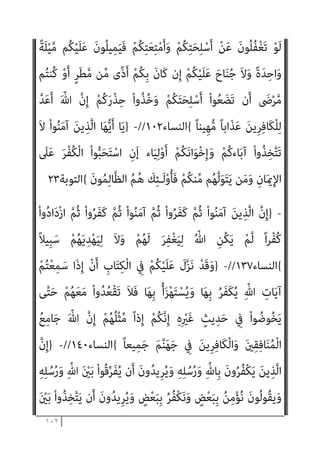 لَوْ تَغْفُلُونَ عَنْ أَسْلِحَتِكُمْ وَأَمْتِعَتِكُمْ فَيَمِيلُونَ عَلَيْكُم مَّيْلَةً
وَاحِدَةً وَلاَ جُنَاحَ عَلَيْكُمْ إِن كَانَ بِكُمْ أَذًى مِّن مَّطَرٍ أَوْ كُنتُم
مَّرْضَى أَن تَضَعُواْ أَسْلِحَتَكُمْ وَخُذُواْ حِذْرَكُمْ إِنَّ اللهَ أَعَدَّ
لِلْكَافِرِينَ عَذَاباً مُّهِيناً {النساء١٠٢//- {يَا أَيُّهَا الَّذِينَ آمَنُواْ لاَ
تَتَّخِذُواْ آبَاءكُمْ وَإِخْوَانَكُمْ أَوْلِيَاء إَنِ اسْتَحَبُّواْ الْكُفْرَ عَلَى
الإِيمَانِ وَمَن يَتَوَلَّهُم مِّنكُمْ فَأُوْلَـئِكَ هُمُ الظَّالِمُونَ {التوبة٢٣
- {إِنَّ الَّذِينَ آمَنُواْ ثُمَّ كَفَرُواْ ثُمَّ آمَنُواْ ثُمَّ كَفَرُواْ ثُمَّ ازْدَادُواْ
كُفْراً لَّمْ يَكُنِ اللهُ لِيَغْفِرَ لَهُمْ وَلاَ لِيَهْدِيَهُمْ سَبِيلاً
{النساء١٣٧//- {وَقَدْ نَزَّلَ عَلَيْكُمْ فِي الْكِتَابِ أَنْ إِذَا سَمِعْتُمْ
آيَاتِ اللهِ يُكَفَرُ بِهَا وَيُسْتَهْزَأُ بِهَا فَلاَ تَقْعُدُواْ مَعَهُمْ حَتَّى
يَخُوضُواْ فِي حَدِيثٍ غَيْرِهِ إِنَّكُمْ إِذاً مِّثْلُهُمْ إِنَّ اللهَ جَامِعُ
الْمُنَافِقِينَ وَالْكَافِرِينَ فِي جَهَنَّمَ جَمِيعاً {النساء١٤٠//- {إِنَّ
الَّذِينَ يَكْفُرُونَ بِاللهِ وَرُسُلِهِ وَيُرِيدُونَ أَن يُفَرِّقُواْ بَيْنَ اللهِ وَرُسُلِهِ
وَيقُولُونَ نُؤْمِنُ بِبَعْضٍ وَنَكْفُرُ بِبَعْضٍ وَيُرِيدُونَ أَن يَتَّخِذُواْ بَيْنَ
١٠٢